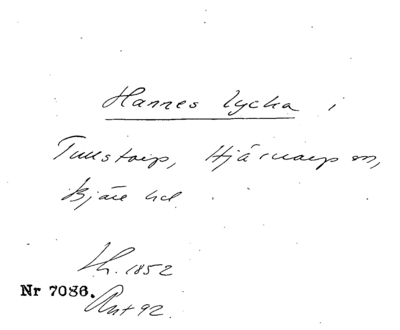 Hannes lycka i
Tunstorp, Hjärnarp sn,
Bjäre hd.
Lh. 1852
Nr 7086.
Ant 92.